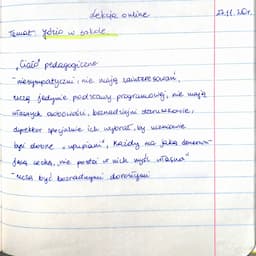 Lekcja online 27.11.20r.
Temat: Józio w szkole.
"Ciało" pedagogiczne
- niesympatyczni, nie mają zainteresowań,
uczą jedynie podstawy programowej, nie mają
własnych osobowości, beznadziejni staruszkowie,
dyrektor specjalnie ich wybrał, by uczniowie
byli dobrze "upupiani", każdy ma jakąś
złą cechą, nie posta w nich myśl własna"
- uczą być bezradnymi dorosłymi